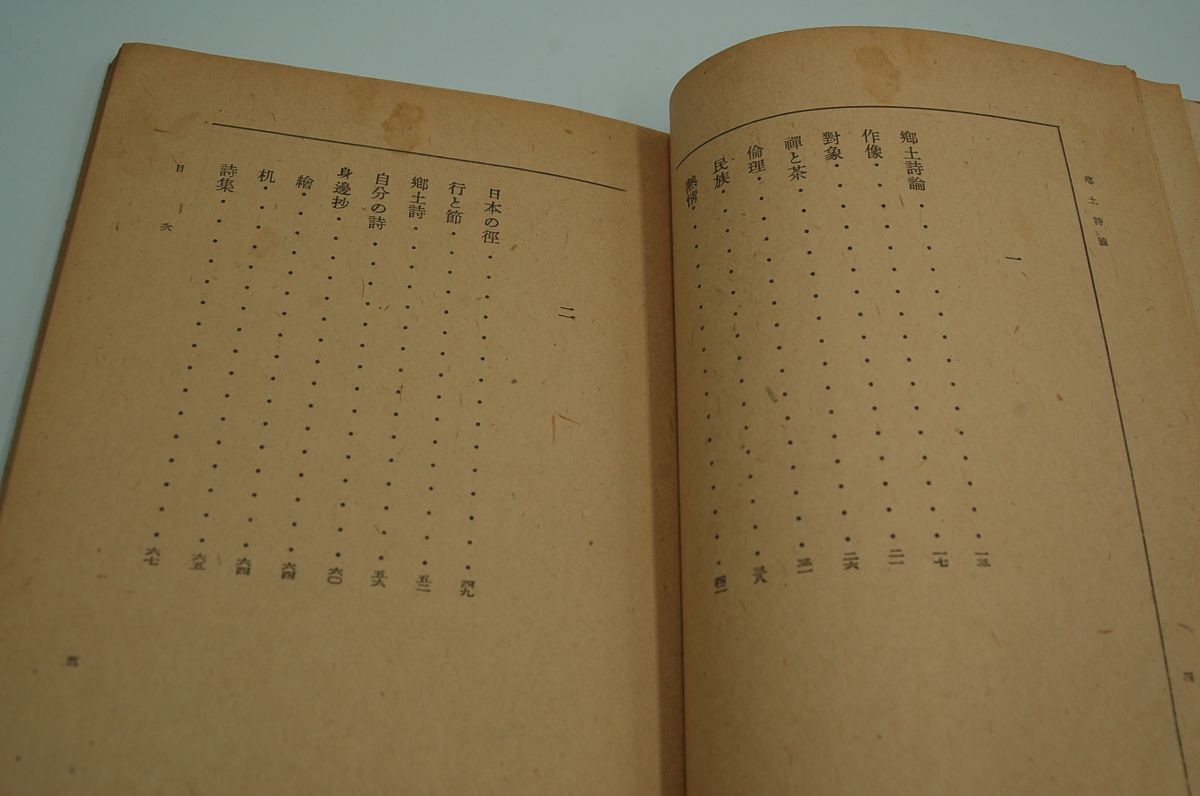 鄕土詩論
一
鄕土詩論・・・・・・・・・・・・・・・・一三
作像・・・・・・・・・・・・・・・・一七
對象・・・・・・・・・・・・・・・・二一
禪と茶・・・・・・・・・・・・・・・・二六
倫理・・・・・・・・・・・・・・・・三一
民族・・・・・・・・・・・・・・・・三八
熱情・・・・・・・・・・・・・・・・四一
四
二
日本の徑・・・・・・・・・・・・・・・・四九
行と節・・・・・・・・・・・・・・・・五二
鄕土詩・・・・・・・・・・・・・・・・五六
自分の詩・・・・・・・・・・・・・・・・六〇
身邊抄・・・・・・・・・・・・・・・・六四
繪・・・・・・・・・・・・・・・・六四
机・・・・・・・・・・・・・・・・六五
詩集・・・・・・・・・・・・・・・・六七
目次
五